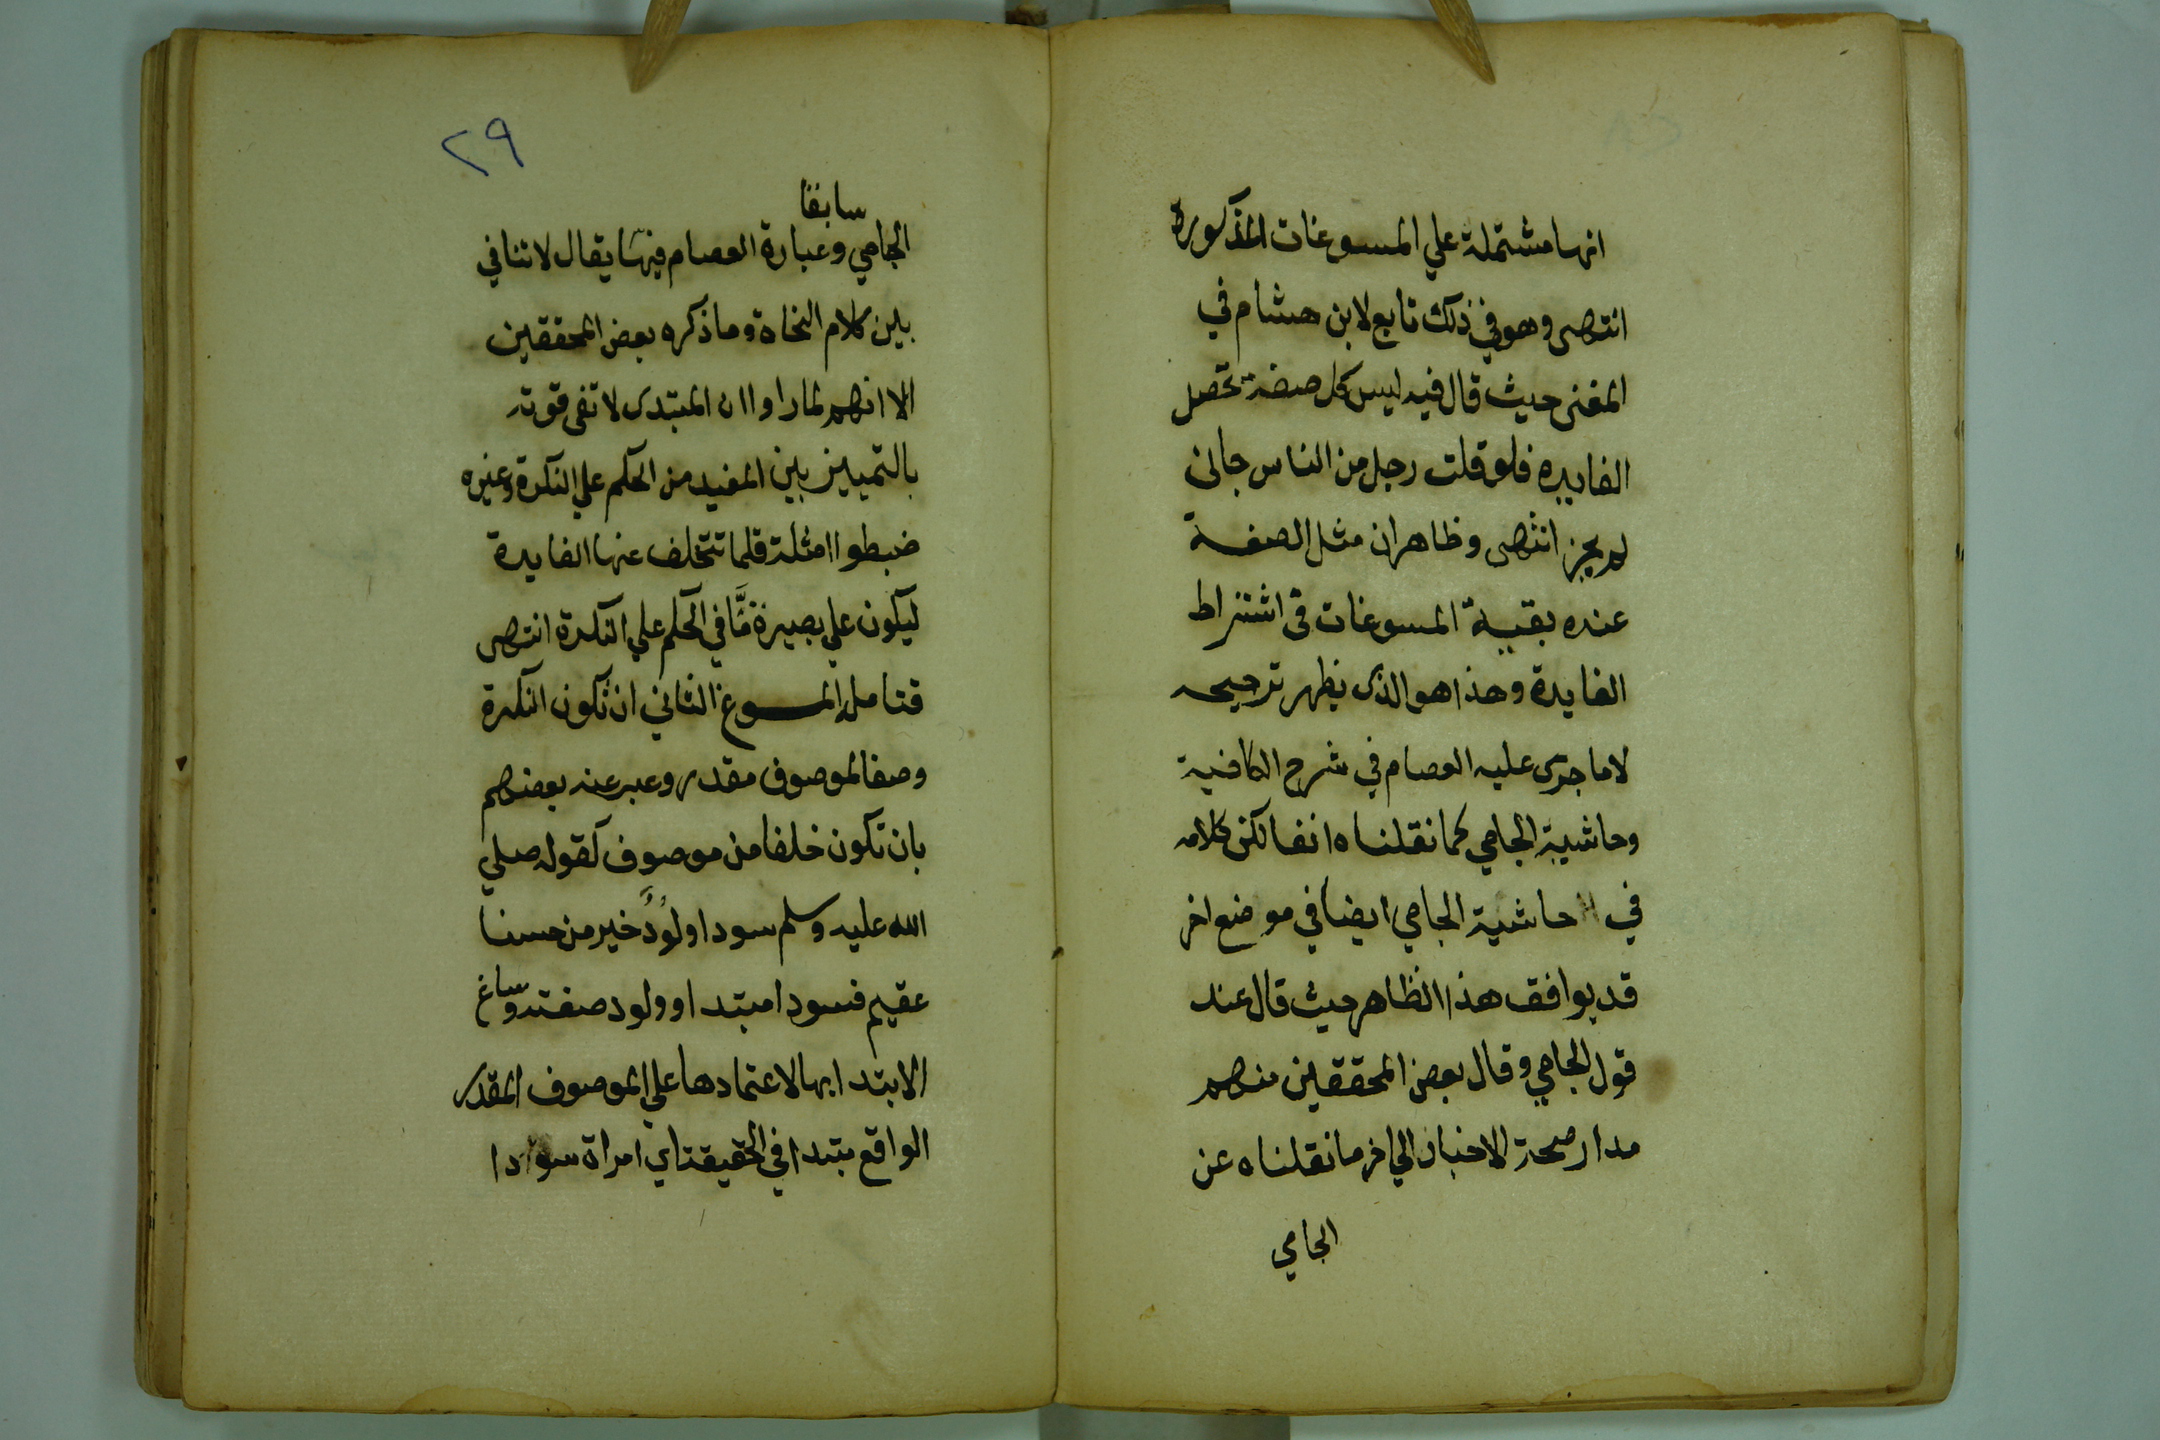 انها مشتملة علي المسوغات المذكورة
انتهى وهو في ذلك تابع لابن هشام في
المغنى حيث قال فيه ليس كل صفة تحصل
الفايده فلو قلت رجل من الناس جانى
لم يجز انتهى وظاهر ان مثل الصفة
عنده بقية المسوغات في اشتراط
الفايدة وهذا هو الذى يظهر ترجيحه
لا ما جرى عليه العصام في شرح الكافية
وحاشية الجامي كما نقلناه انفا لكن كلامه
في حاشية الجامي ايضا في موضع اخر
قد يوافق هذا الظاهر حيث قال عند
قول الجامي وقال بعض المحققين منهم
مدار صحة الاخبار الي اخر ما نقلناه عن
الجامي
٢٩
سابقا
الجامي وعبارة العصام فيها يقال لا تنافي
بين كلام النحاة وما ذكره بعض المحققين
الا انهم لما راوا ان المبتدى لا تفى قوته
بالتمييز بين المفيد من الحكم علي النكرة وغيره
ضبطوا امثلة قلما تتخلف عنها الفايدة
ليكون علي بصيرة مَّا في الحكم علي النكرة انتهى
فتامل المسوغ الثاني ان تكون النكرة
وصفا لموصوف مقدر وعبر عنه بعضهم
بان تكون خلفا من موصوف كقوله صلي
الله عليه وسلم سودا ولُودٌ خير من حسنا
عقيم فسودا مبتدا وولود صفته وساغ
الابتدا بها لاعتمادها علي الموصوف المقدر
الواقع مبتدا في الحقيقة اي امراة سودا